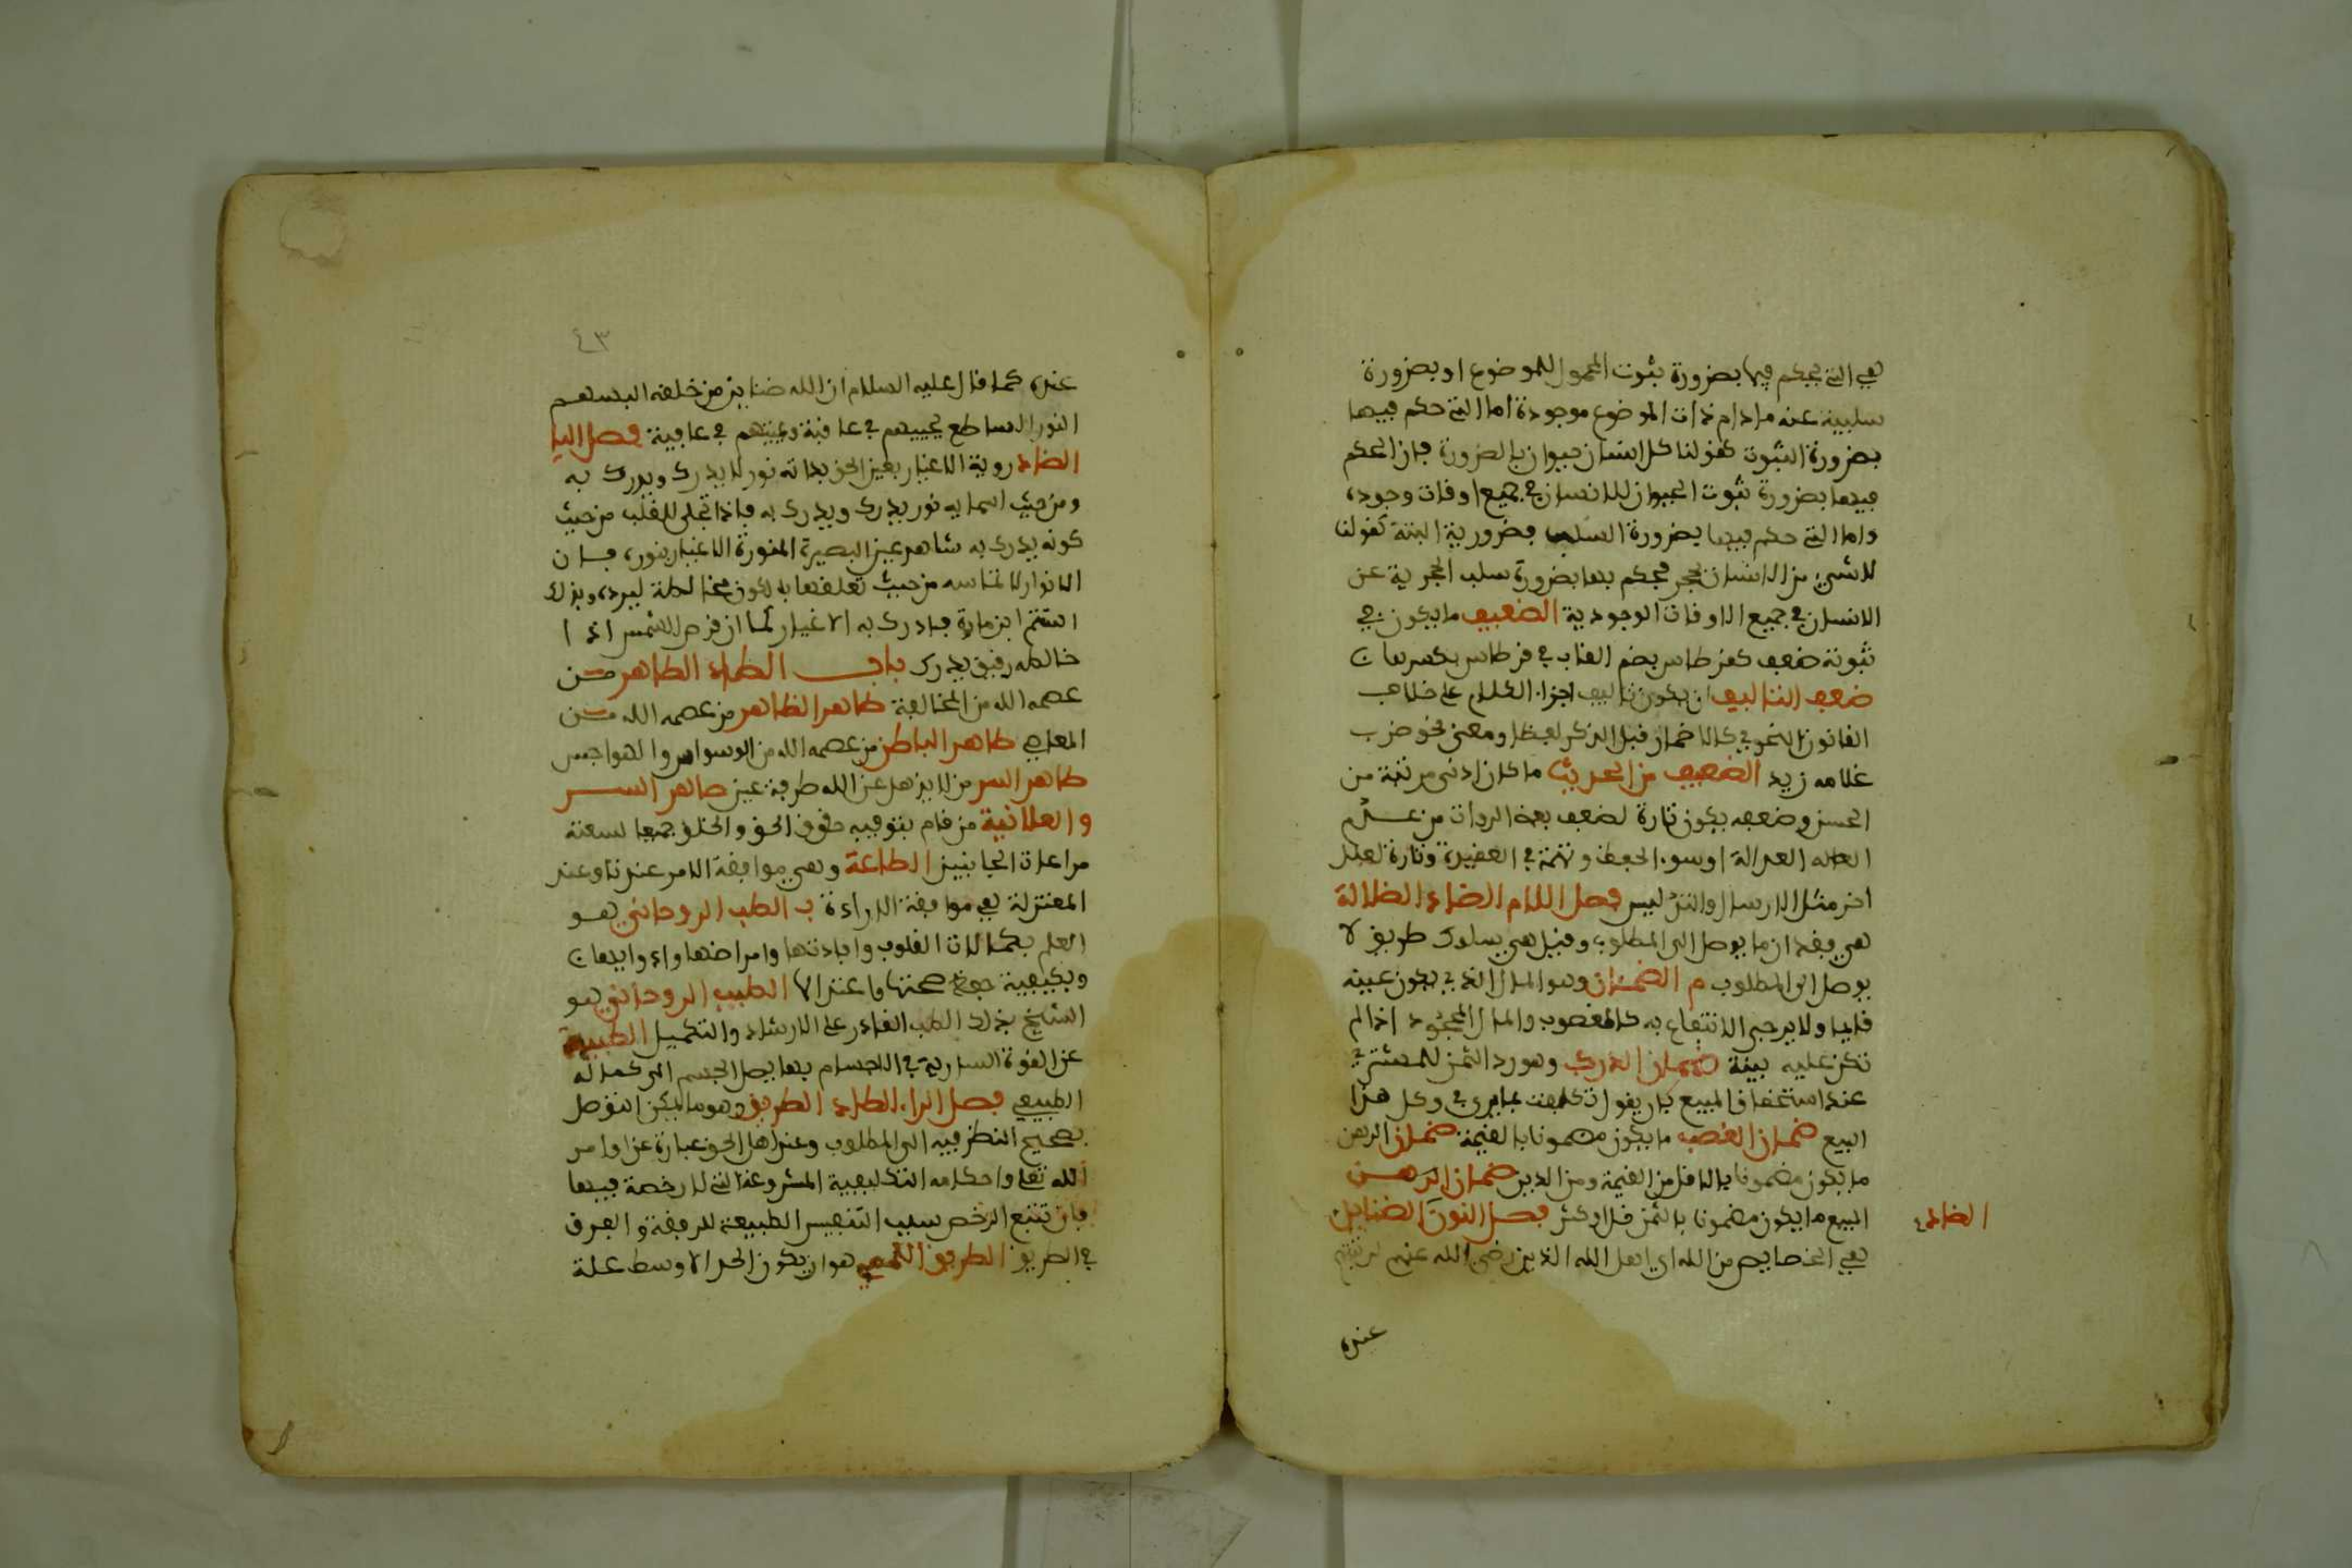 هي التي يحكم فيها بضرورة ثبوت المحمول للموضوع او بضرورة
سلبية عنه مادام ذات الموضوع موجودة اما التي حكم فيها
بضرورة الثبوت كقولنا كل انسان حيوان بالضرورة فان الحكم
فيها بضرورة ثبوت الحيوان للانسان في جميع اوقات وجوده
واما التي حكم فيها بضرورة السلب فضرورية البتة كقولنا
لا شيء من الانسان بحجر فحكم بها بضرورة سلب الحجرية عن
الانسان في جميع الاوقات الوجودية الضعيف ما يكون في
ثبوته ضعف كقرطاس بضم القاف في قرطاس بكسرها ن
ضعف التاليف ان يكون تاليف اجزاء الكلام على خلاف
القانون النحوي كالاضمار قبل الذكر لفظا ومعنى نحو ضرب
غلامه زيد الضعيف من الحديث ما كان ادنى مرتبة من
الحسن وضعفه يكون تارة لضعف بعض الروات من عدم
العدالة اوسوء الحفظ وتهمة في العقيدة وتارة لعلل
اخر مثل الارسال والتدليس فصل اللام الضاد الضلالة
هي فقدان ما يوصل الى المطلوب وقيل هي سلوك طريق لا
يوصل الى المطلوب م الضمار وهو المال الذي يكون عينه
قايما ولا يرجى الانتفاع به كالمغصوب والمال المجحود اذا لم
تكن عليه بينة ضمان الدرك وهو رد الثمن للمشتري
عند استحقاق المبيع بان يقول تكلفت بما يدرك في هذا
البيع ضمان الغصب ما يكون مضمونا بالقيمة ضمان الرهن
ما يكون مضمونا بالاقل من القيمة ومن الدين ضمان الرهن
المبيع ما يكون مضمونا بالثمن قل او كثر فصل النون الضناين
الضاد
هي الخصايص من الله اي اهل الله الذين رضي الله عنهم
عنده
٤٣
عنده كما قال عليه السلام ان لله ضناين من خلقه البسهم
النور الساطع يحييهم في عافية ويميتهم في عافية فصل اليا
الضاد روية الاغيار بعين الحق بذاته نور لا يدرك ويدرك به
ومن حيث اسمايه نور يدرك ويدرك به فاذا تجلى للقلب من حيث
كونه يدرك به شاهد عين البصيرة المنورة الاغيار بنوره فان
الانوار الاسماييه من حيث تعلقها بالكون مخالطة لسواده وبذلك
استتر انبهاره فادرك به الاغيار كما ان قرص الشمس اذا
خالطه رقيق يدرك باب الطاء الطاهر من
عصمه الله من المخالفة طاهر الظاهر من عصمه الله من
المعاصي طاهر الباطن من عصمه الله من الوسواس والهواجس
طاهر السر من لا يذهل عن الله طرفة عين طاهر السر
والعلانية من قام بتوفيه حقوق الحق والخلق جميعا لسعته
مراعاة الجانبين الطاعة وهي موافقة الامر عندنا وعند
المعتزلة هي موافقة الارادة ب الطب الروحاني هو
العلم بكمالات القلوب وافاتها وامراضها وادوايها ن
وبكيفية حفظ صحتها واعتدالها الطبيب الروحاني هو
الشيخ بذلك الطب القادر على الارشاد والتكميل الطبيعة
عن القوة السارية في الاجسام بها يصل الجسم الى كماله
الطبيعي فصل الراء الطاء الطريق وهو ما يمكن التوصل
بصحيح النظر فيه الى المطلوب وعند اهل الحق عبارة عن اوامر
الله تعلى واحكامه التكليفية المشروعة التي لا رخصة فيها
فان تتبع الرخص سبب التنفيس الطبيعة للوقفة والفرق
في الطريق الطريق اللمي هو ان يكون الحد الاوسط علة